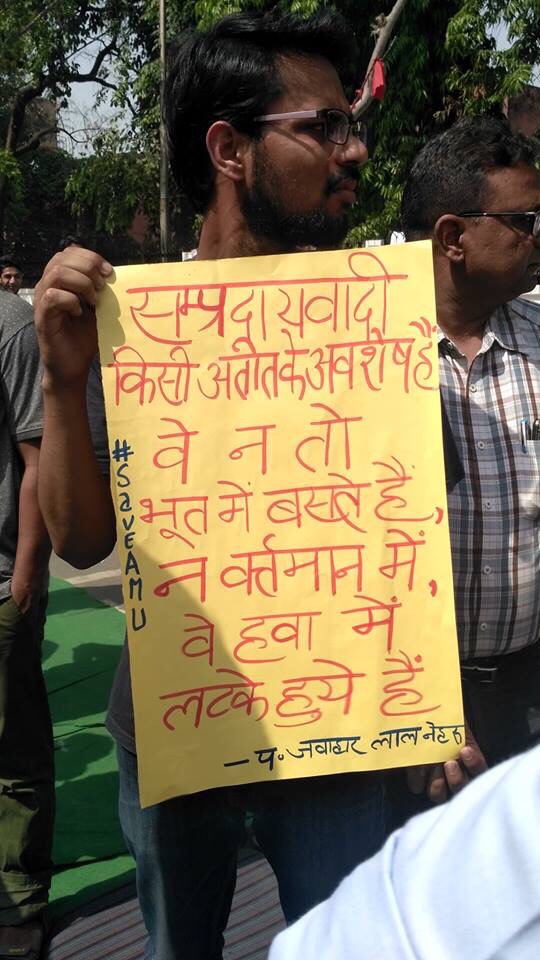 सम्प्रदायवादी
किसी अतीत के अवशेष हैं
वे न तो
भूत में बस्ते हैं,
न वर्तमान में,
वे हवा में
लटके हुये हैं
– प. जवाहर लाल नेहरू
#SaveAMU